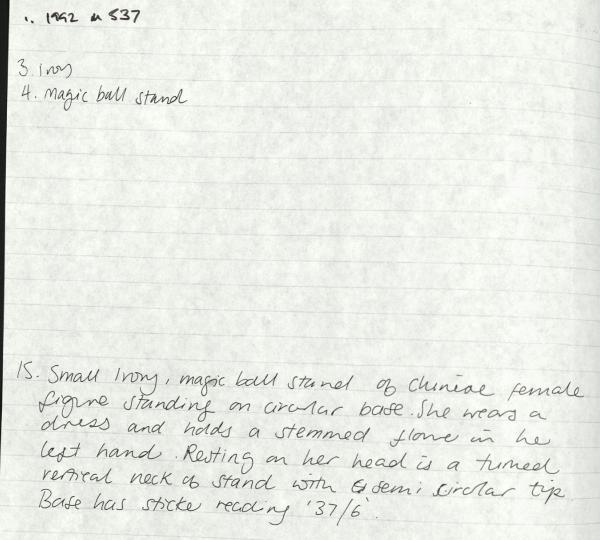 1. 1992 n 537
3. Ivory
4. Magic ball stand
15. Small Ivory, magic ball stand of Chinese female
figure standing on circular base. She wears a
dress and holds a stemmed flower in her
left hand. Resting on her head is a turned
vertical neck of stand with semi circular tip.
Base has sticker reading '37/6'.